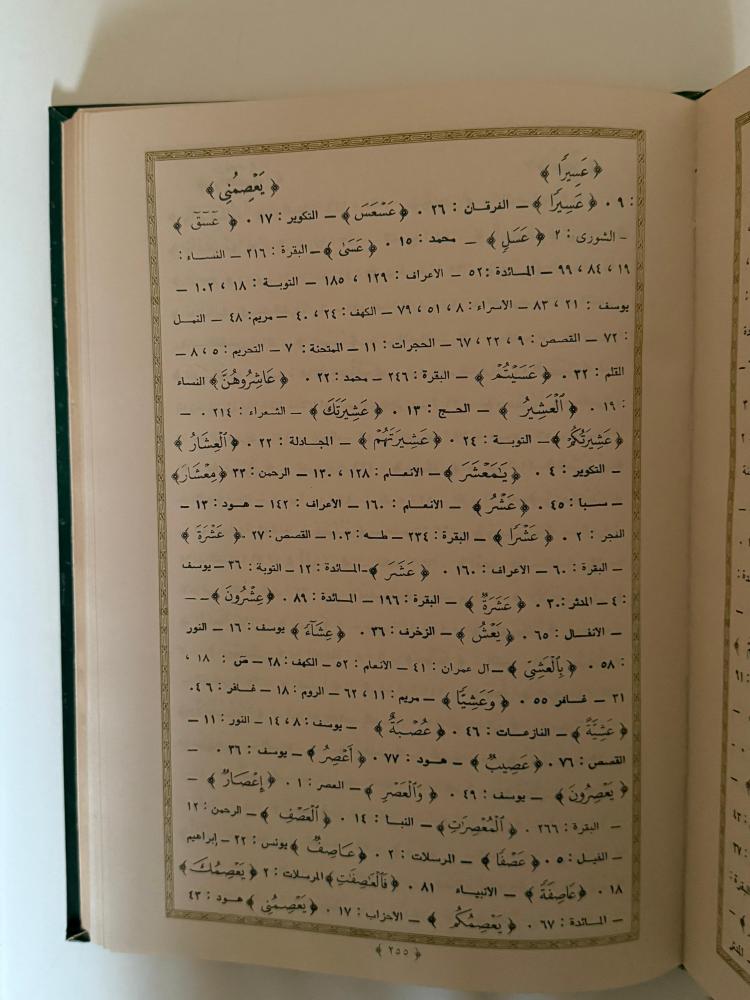 ﴿ عَسِيرًا ﴾ ﴿ يَعْصِمُنِي ﴾
: ٩ ٠ ﴿ عَسِيرًا ﴾ — الفرقان : ٢٦ ٠ ﴿ عَسْعَسَ ﴾ — التكوير : ١٧ ٠ ﴿ عٓسٓقٓ ﴾
- الشورى : ٢ ﴿ عَسَلٍ ﴾ — محمد : ١٥ ٠ ﴿ عَسَىٰ ﴾ — البقرة : ٢١٦ — النساء :
١٩ ، ٨٤ ، ٩٩ — المائدة : ٥٢ — الاعراف : ١٢٩ ، ١٨٥ — التوبة : ١٨ ، ١٠٢ —
يوسف : ٢١ ، ٨٣ — الاسراء : ٨ ، ٥١ ، ٧٩ — الكهف : ٢٤ ، ٤٠ — مريم : ٤٨ — النمل
: ٧٢ — القصص : ٩ ، ٢٢ ، ٦٧ — الحجرات : ١١ — الممتحنة : ٧ — التحريم : ٥ ، ٨ —
القلم : ٣٢ ٠ ﴿ عَسَيْتُمْ ﴾ — البقرة : ٢٤٦ — محمد : ٢٢ ٠ ﴿ عَاشِرُوهُنَّ ﴾ النساء
: ١٩ ٠ ﴿ ٱلْعَشِيرُ ﴾ — الحج : ١٣ ٠ ﴿ عَشِيرَتَكَ ﴾ — الشعراء : ٢١٤ ٠ —
﴿ عَشِيرَتُكُمْ ﴾ — التوبة : ٢٤ ٠ ﴿ عَشِيرَتَهُمْ ﴾ — المجادلة : ٢٢ ٠ ﴿ ٱلْعِشَارُ ﴾
— التكوير : ٤ ٠ ﴿ يَـٰمَعْشَرَ ﴾ — الأنعام : ١٢٨ ، ١٣٠ — الرحمن : ٣٣ ﴿ مِعْشَارَ ﴾
— سبا : ٤٥ ٠ ﴿ عَشْرُ ﴾ — الانعام : ١٦٠ — الأعراف : ١٤٢ — هود : ١٣ —
الفجر : ٢ ٠ ﴿ عَشْرًا ﴾ — البقرة : ٢٣٤ — طه : ١٠٣ — القصص : ٢٧ ٠ ﴿ عَشْرَةَ ﴾
— البقرة : ٦٠ — الاعراف : ١٦٠ ٠ ﴿ عَشَرَ ﴾ — المائدة : ١٢ — التوبة : ٣٦ — يوسف
: ٤ — المدثر : ٣٠ ٠ ﴿ عَشَرَةٌ ﴾ — البقرة : ١٩٦ — المائدة : ٨٩ ٠ ﴿ عِشْرُونَ ﴾ — —
— الانفال : ٦٥ ٠ ﴿ يَعْشُ ﴾ — الزخرف : ٣٦ ٠ ﴿ عِشَآءً ﴾ يوسف : ١٦ — النور
: ٥٨ ٠ ﴿ بِٱلْعَشِيِّ ﴾ — آل عمران : ٤١ — الانعام : ٥٢ — الكهف : ٢٨ — صٓ : ١٨ ،
٣١ — غافر ٥٥ ٠ ﴿ وَعَشِيًّا ﴾ — مريم : ١١ ، ٦٢ — الروم : ١٨ — غافر : ٤٦ ٠
﴿ عَشِيَّةً ﴾ — النازعات : ٤٦ ٠ ﴿ عُصْبَةٌ ﴾ — يوسف : ٨ ، ١٤ — النور : ١١ —
القصص : ٧٦ ٠ ﴿ عَصِيبٌ ﴾ — هود : ٧٧ ٠ ﴿ أَعْصِرُ ﴾ — يوسف : ٣٦ ٠ —
﴿ يَعْصِرُونَ ﴾ — يوسف : ٤٩ ٠ ﴿ وَٱلْعَصْرِ ﴾ — العصر : ١ ٠ ﴿ إِعْصَارٌ ﴾ —
— البقرة : ٢٦٦ ٠ ﴿ ٱلْمُعْصِرَٰتِ ﴾ — النبا : ١٤ ٠ ﴿ ٱلْعَصْفِ ﴾ — الرحمن : ١٢
— الفيل : ٥ ٠ ﴿ عَصْفًا ﴾ — المرسلات : ٢ ٠ ﴿ عَاصِفٌ ﴾ يونس : ٢٢ — إبراهيم
١٨ ٠ ﴿ عَاصِفَةً ﴾ — الانبياء ٨١ ٠ ﴿ فَٱلْعَـٰصِفَـٰتِ ﴾ المرسلات : ٢ ﴿ يَعْصِمُكَ ﴾
— المائدة : ٦٧ ٠ ﴿ يَعْصِمُكُم ﴾ — الاحزاب : ١٧ ٠ ﴿ يَعْصِمُنِي ﴾ هود : ٤٣
﴿ ٢٥٥ ﴾